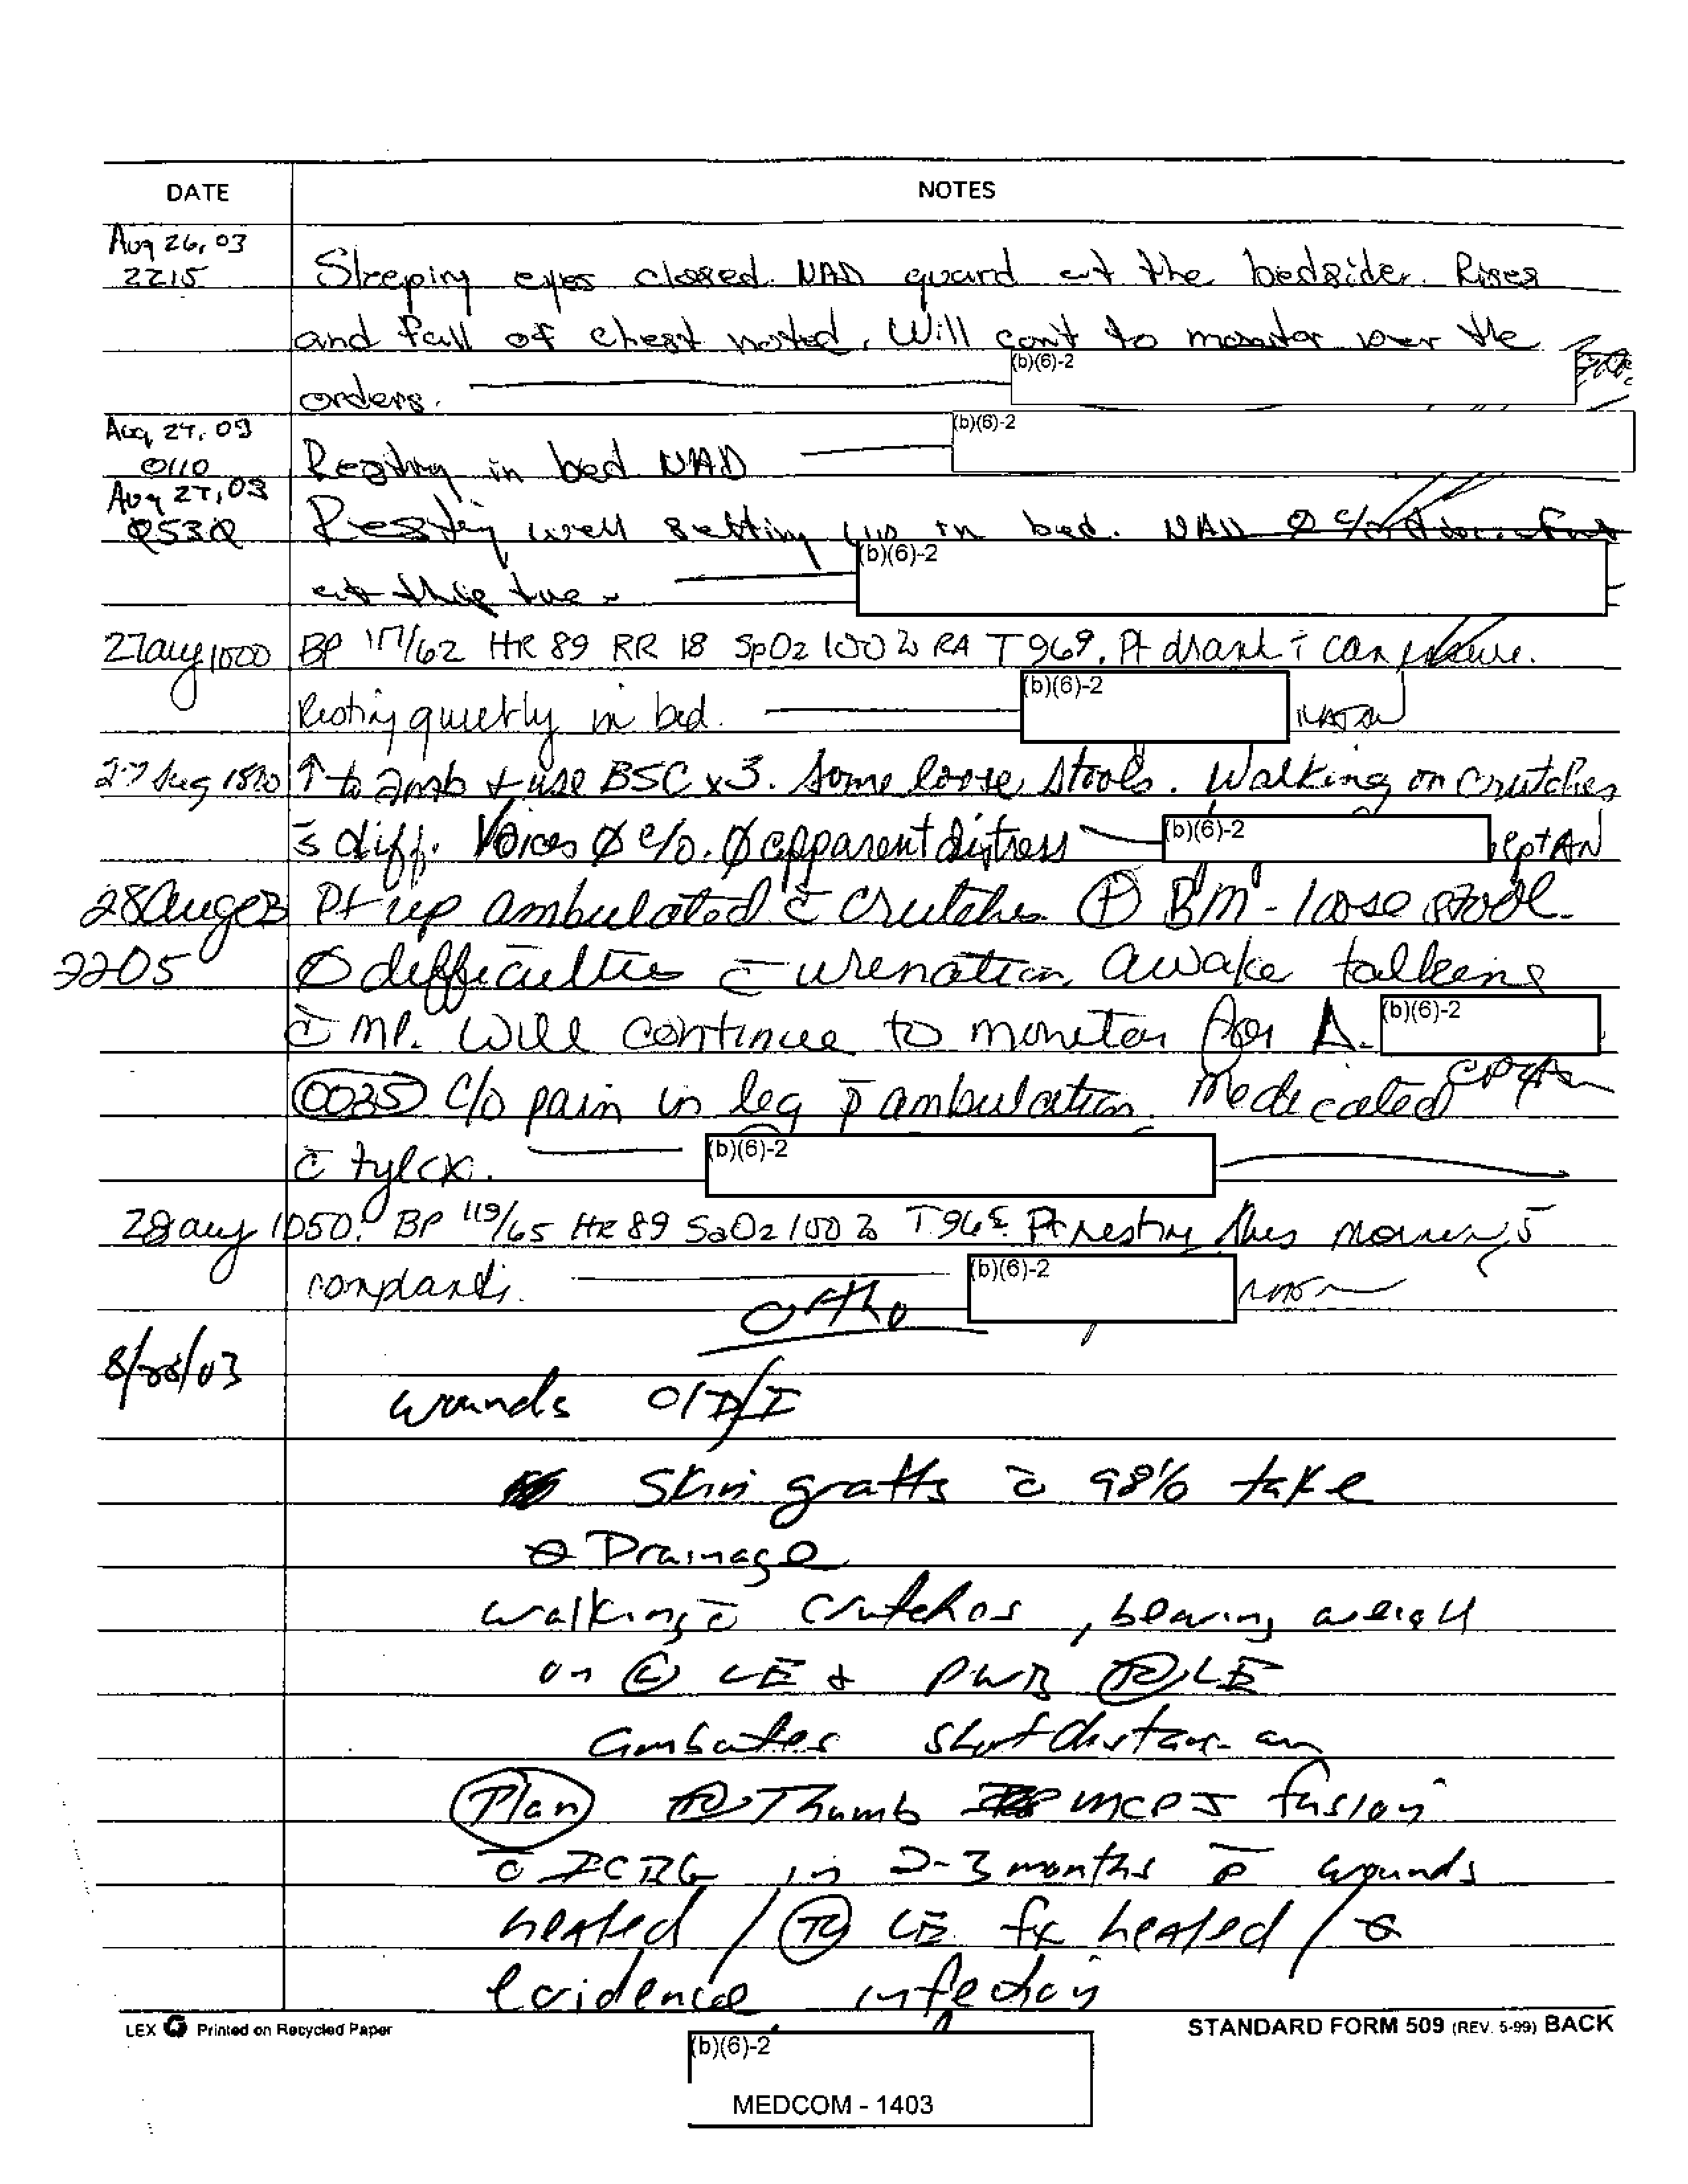 DATE NOTES
Aug 26, 03
2215 Sleeping eyes closed. NAD guard at the bedside. Rises
and fall of chest noted. Will con't to monitor per the
(b)(6)-2
orders.
Aug 27, 03 (b)(6)-2
0110 Resting in bed NAD
Aug 27, 03
0530 Resting well setting up in bed. NAD Ø c/o
(b)(6)-2
at this
27 Aug 1000 BP 117/62 HR 89 RR 18 SpO2 100% RA T 969. Pt drank
(b)(6)-2
Resting quietly in bed.
27 Aug ↑ to amb + use BSC x3. Some loose stools. Walking on crutches
s̄ diff. Voices Ø c/o. Ø apparent distress (b)(6)-2
28 Aug 03 Pt up ambulated c̄ crutches ⊕ BM - loose stool.
2205 Ø difficulties c̄ urination. Awake talking
c̄ MP. Will continue to monitor for Δ. (b)(6)-2
0035 c/o pain in leg p̄ ambulation. Medicated
c̄ tylox. (b)(6)-2
28 Aug 1050. BP 119/65 HR 89 SaO2 100% T 96 Pt resting this morning s̄
(b)(6)-2
complaints.
Ortho
8/28/03
wounds C/D/I
Skin grafts c̄ 98% take
Ø Drainage
walking c̄ crutches, bearing weight
on Ⓛ LE + PWB Ⓡ LE
short distance
Plan Ⓡ Thumb MCPJ fusion
c̄ ICBG in 2-3 months p̄ wounds
healed / Ⓡ LE fx healed / Ø
evidence infection
LEX Printed on Recycled Paper STANDARD FORM 509 (REV. 5-99) BACK
(b)(6)-2
MEDCOM - 1403